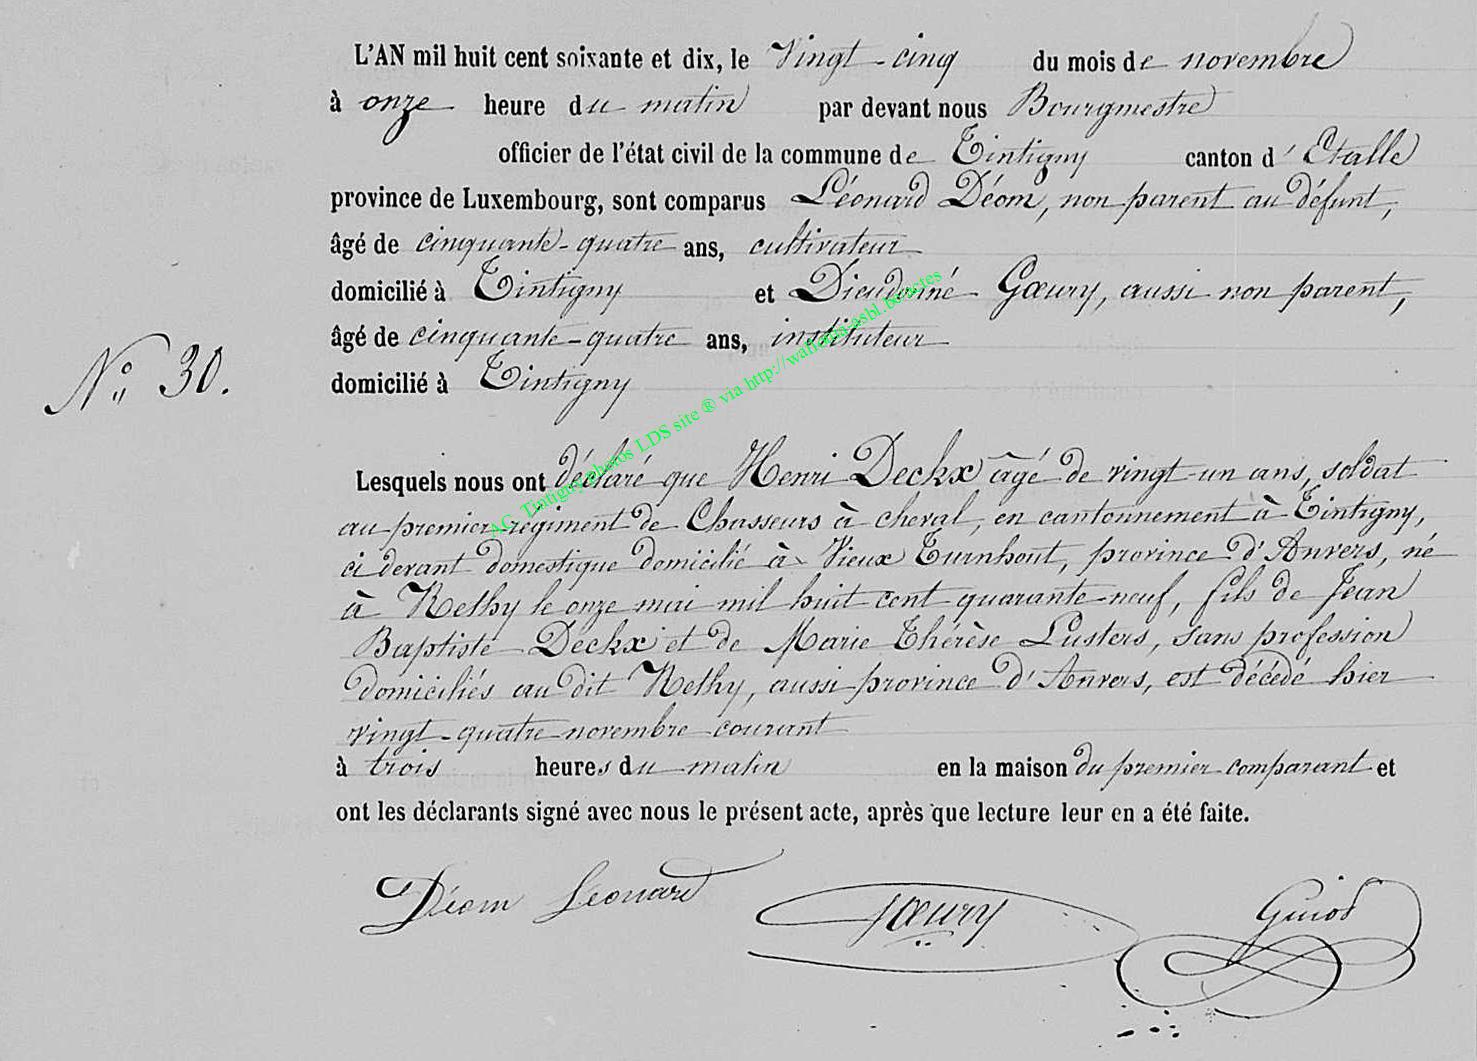 L'AN mil huit cent soixante et dix, le Vingt-cinq du mois de novembre
à onze heure du matin par devant nous Bourgmestre
officier de l'état civil de la commune de Tintigny canton d'Etalle
province de Luxembourg, sont comparus Léonard Déom, non parent au défunt,
âgé de cinquante-quatre ans, cultivateur
domicilié à Tintigny et Dieudonné Gœury, aussi non parent,
âgé de cinquante-quatre ans, instituteur
N° 30.
domicilié à Tintigny
AC Tintigny photos LDS site ® via http://wallonia-asbl.be/actes
Lesquels nous ont déclaré que Henri Deckx âgé de vingt-un ans, soldat
au premier régiment de Chasseurs à cheval, en cantonnement à Tintigny,
ci devant domestique domicilié à Vieux Turnhout, province d'Anvers, né
à Rethy le onze mai mil huit cent quarante-neuf, fils de Jean
Baptiste Deckx et de Marie Thérèse Lusters, sans profession
domiciliés au dit Rethy, aussi province d'Anvers, est décédé hier
vingt-quatre novembre courant
à trois heures du matin en la maison du premier comparant et
ont les déclarants signé avec nous le présent acte, après que lecture leur en a été faite.
Déom Léonard Gœury Guiot